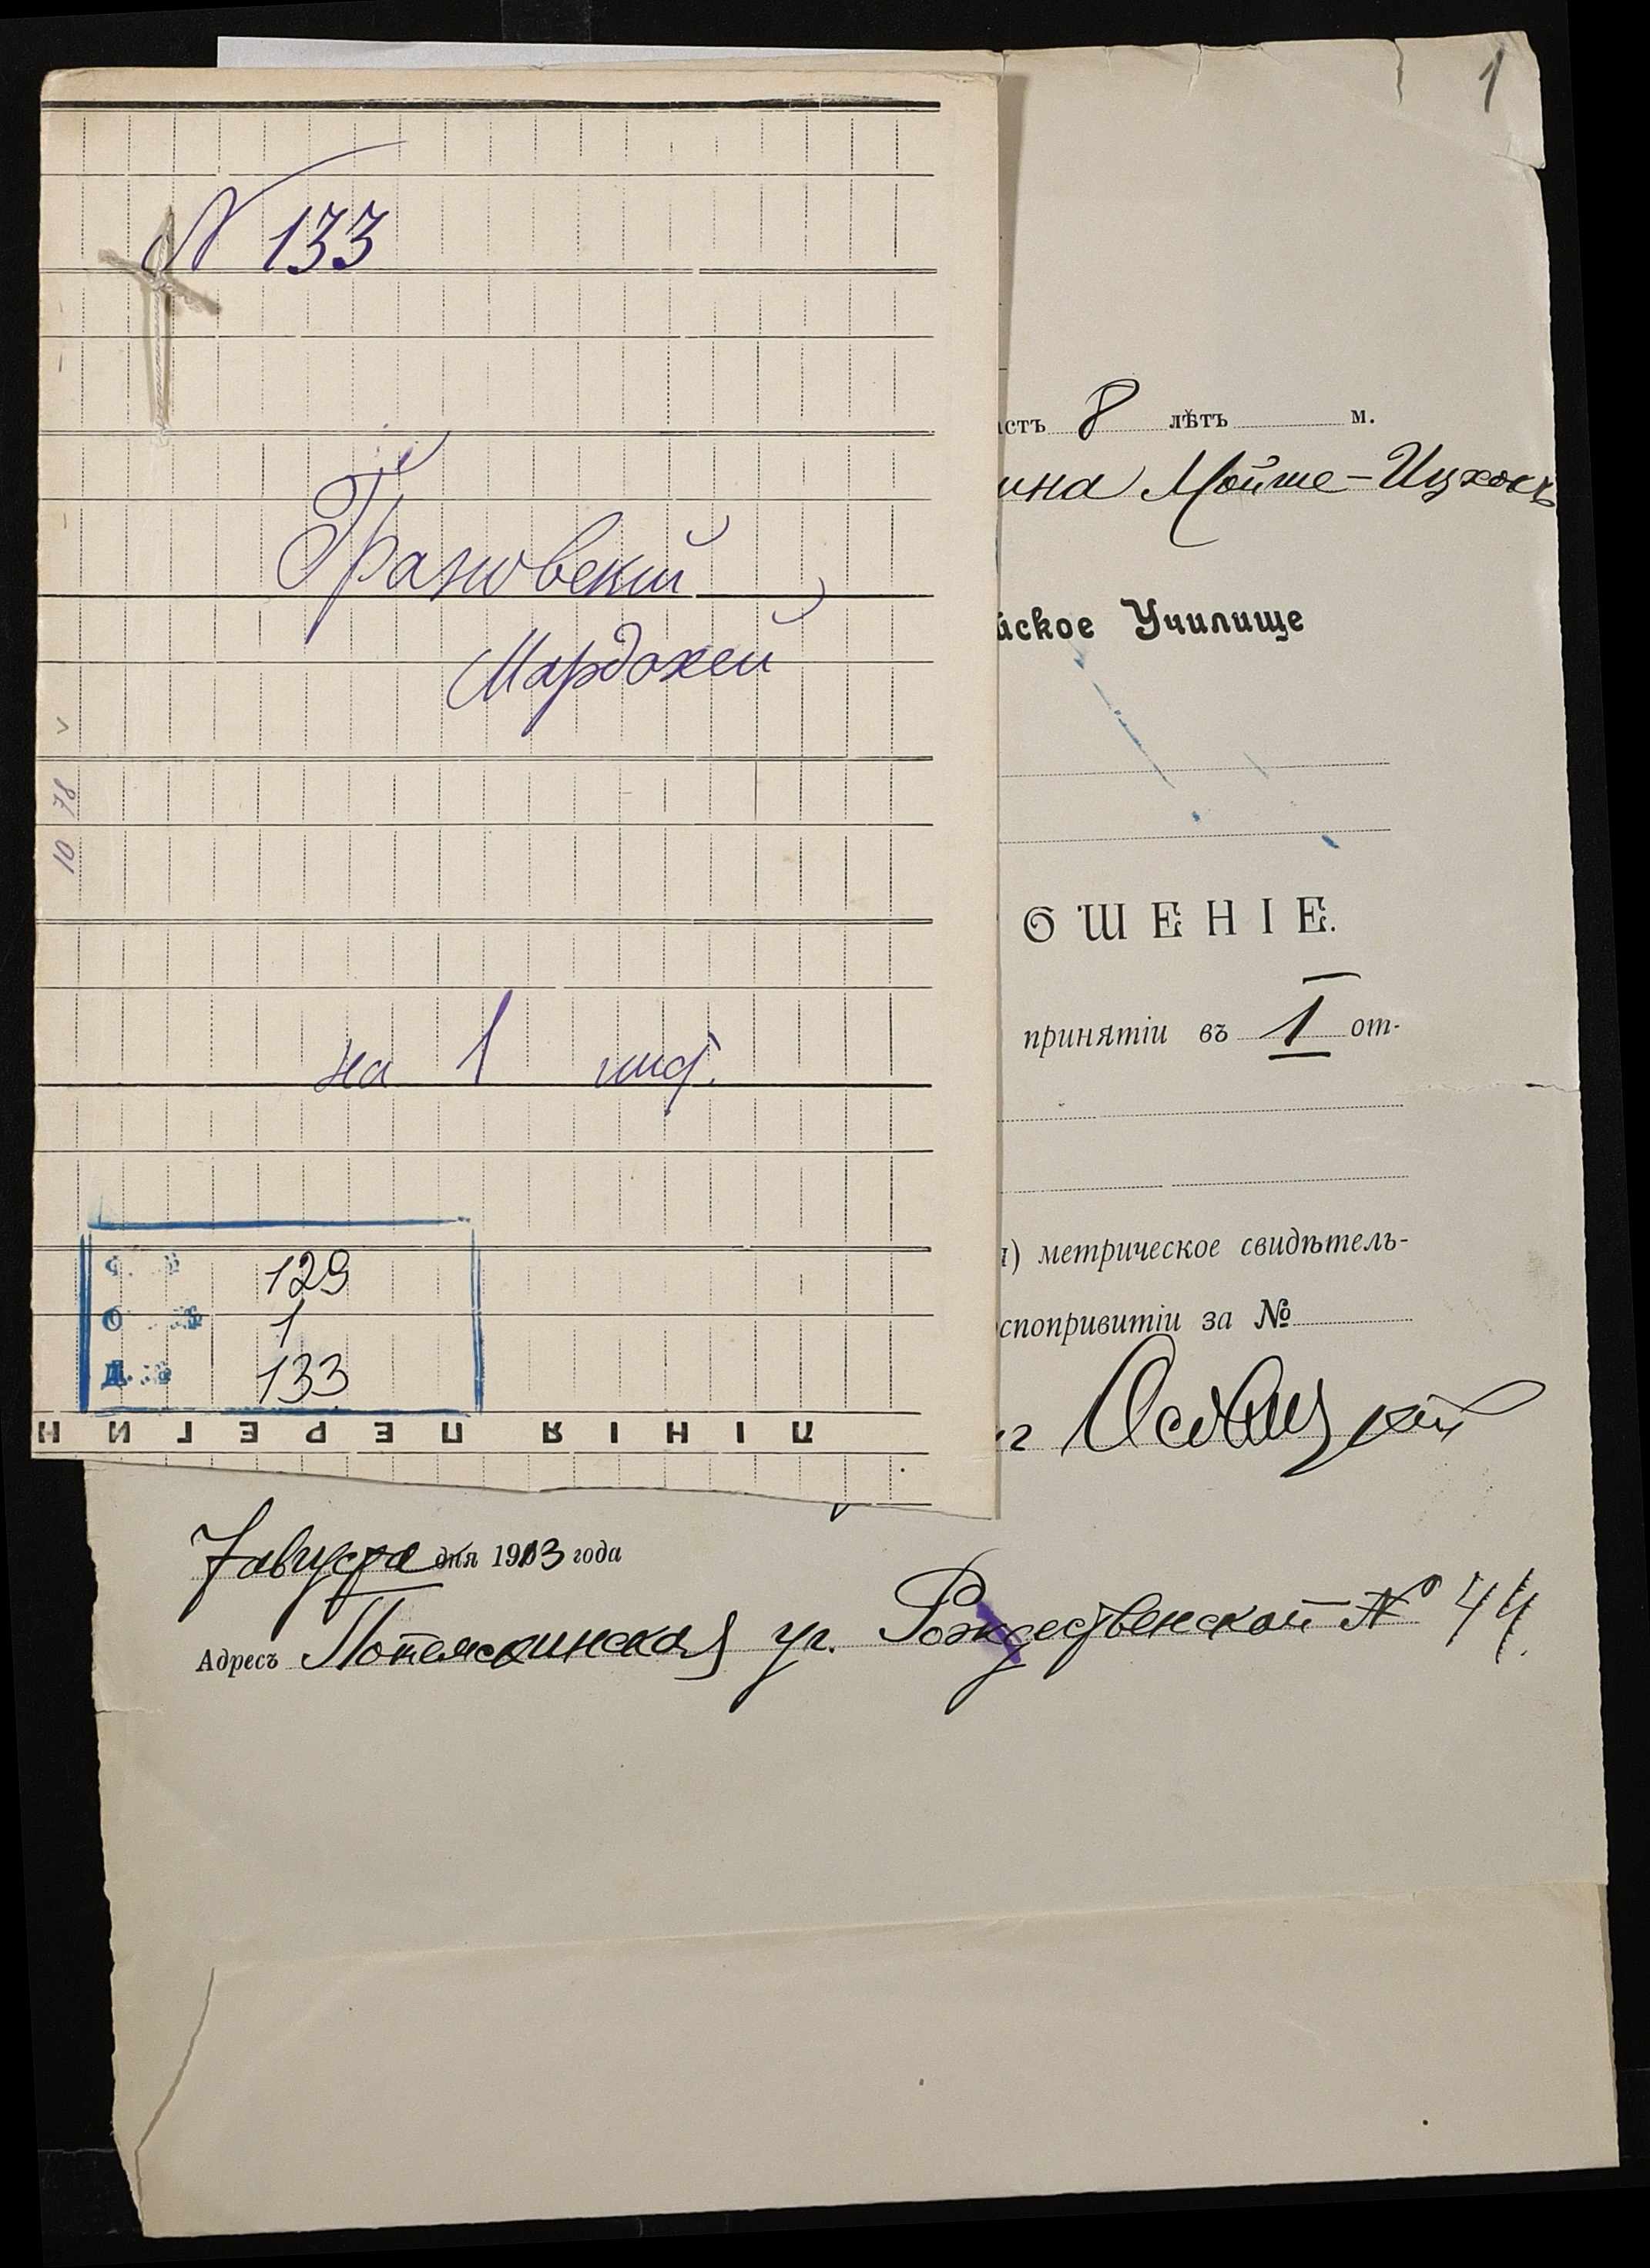 1
N 133
Грановский
Мардохей
10 78
на 1 лис.
Ф. № 129
О. № 1
Д. № 133
ЛИНІЯ ПЕРЕГИН
астъ 8 лѣтъ м.
ина Мойше-Ицхокъ
йское Училище
ОШЕНІЕ.
принятіи въ 1 от-
) метрическое свидѣтель-
спопривитіи за №
7 августа дня 1913 года
Адресъ Потемкинская уг. Рождественской № 44